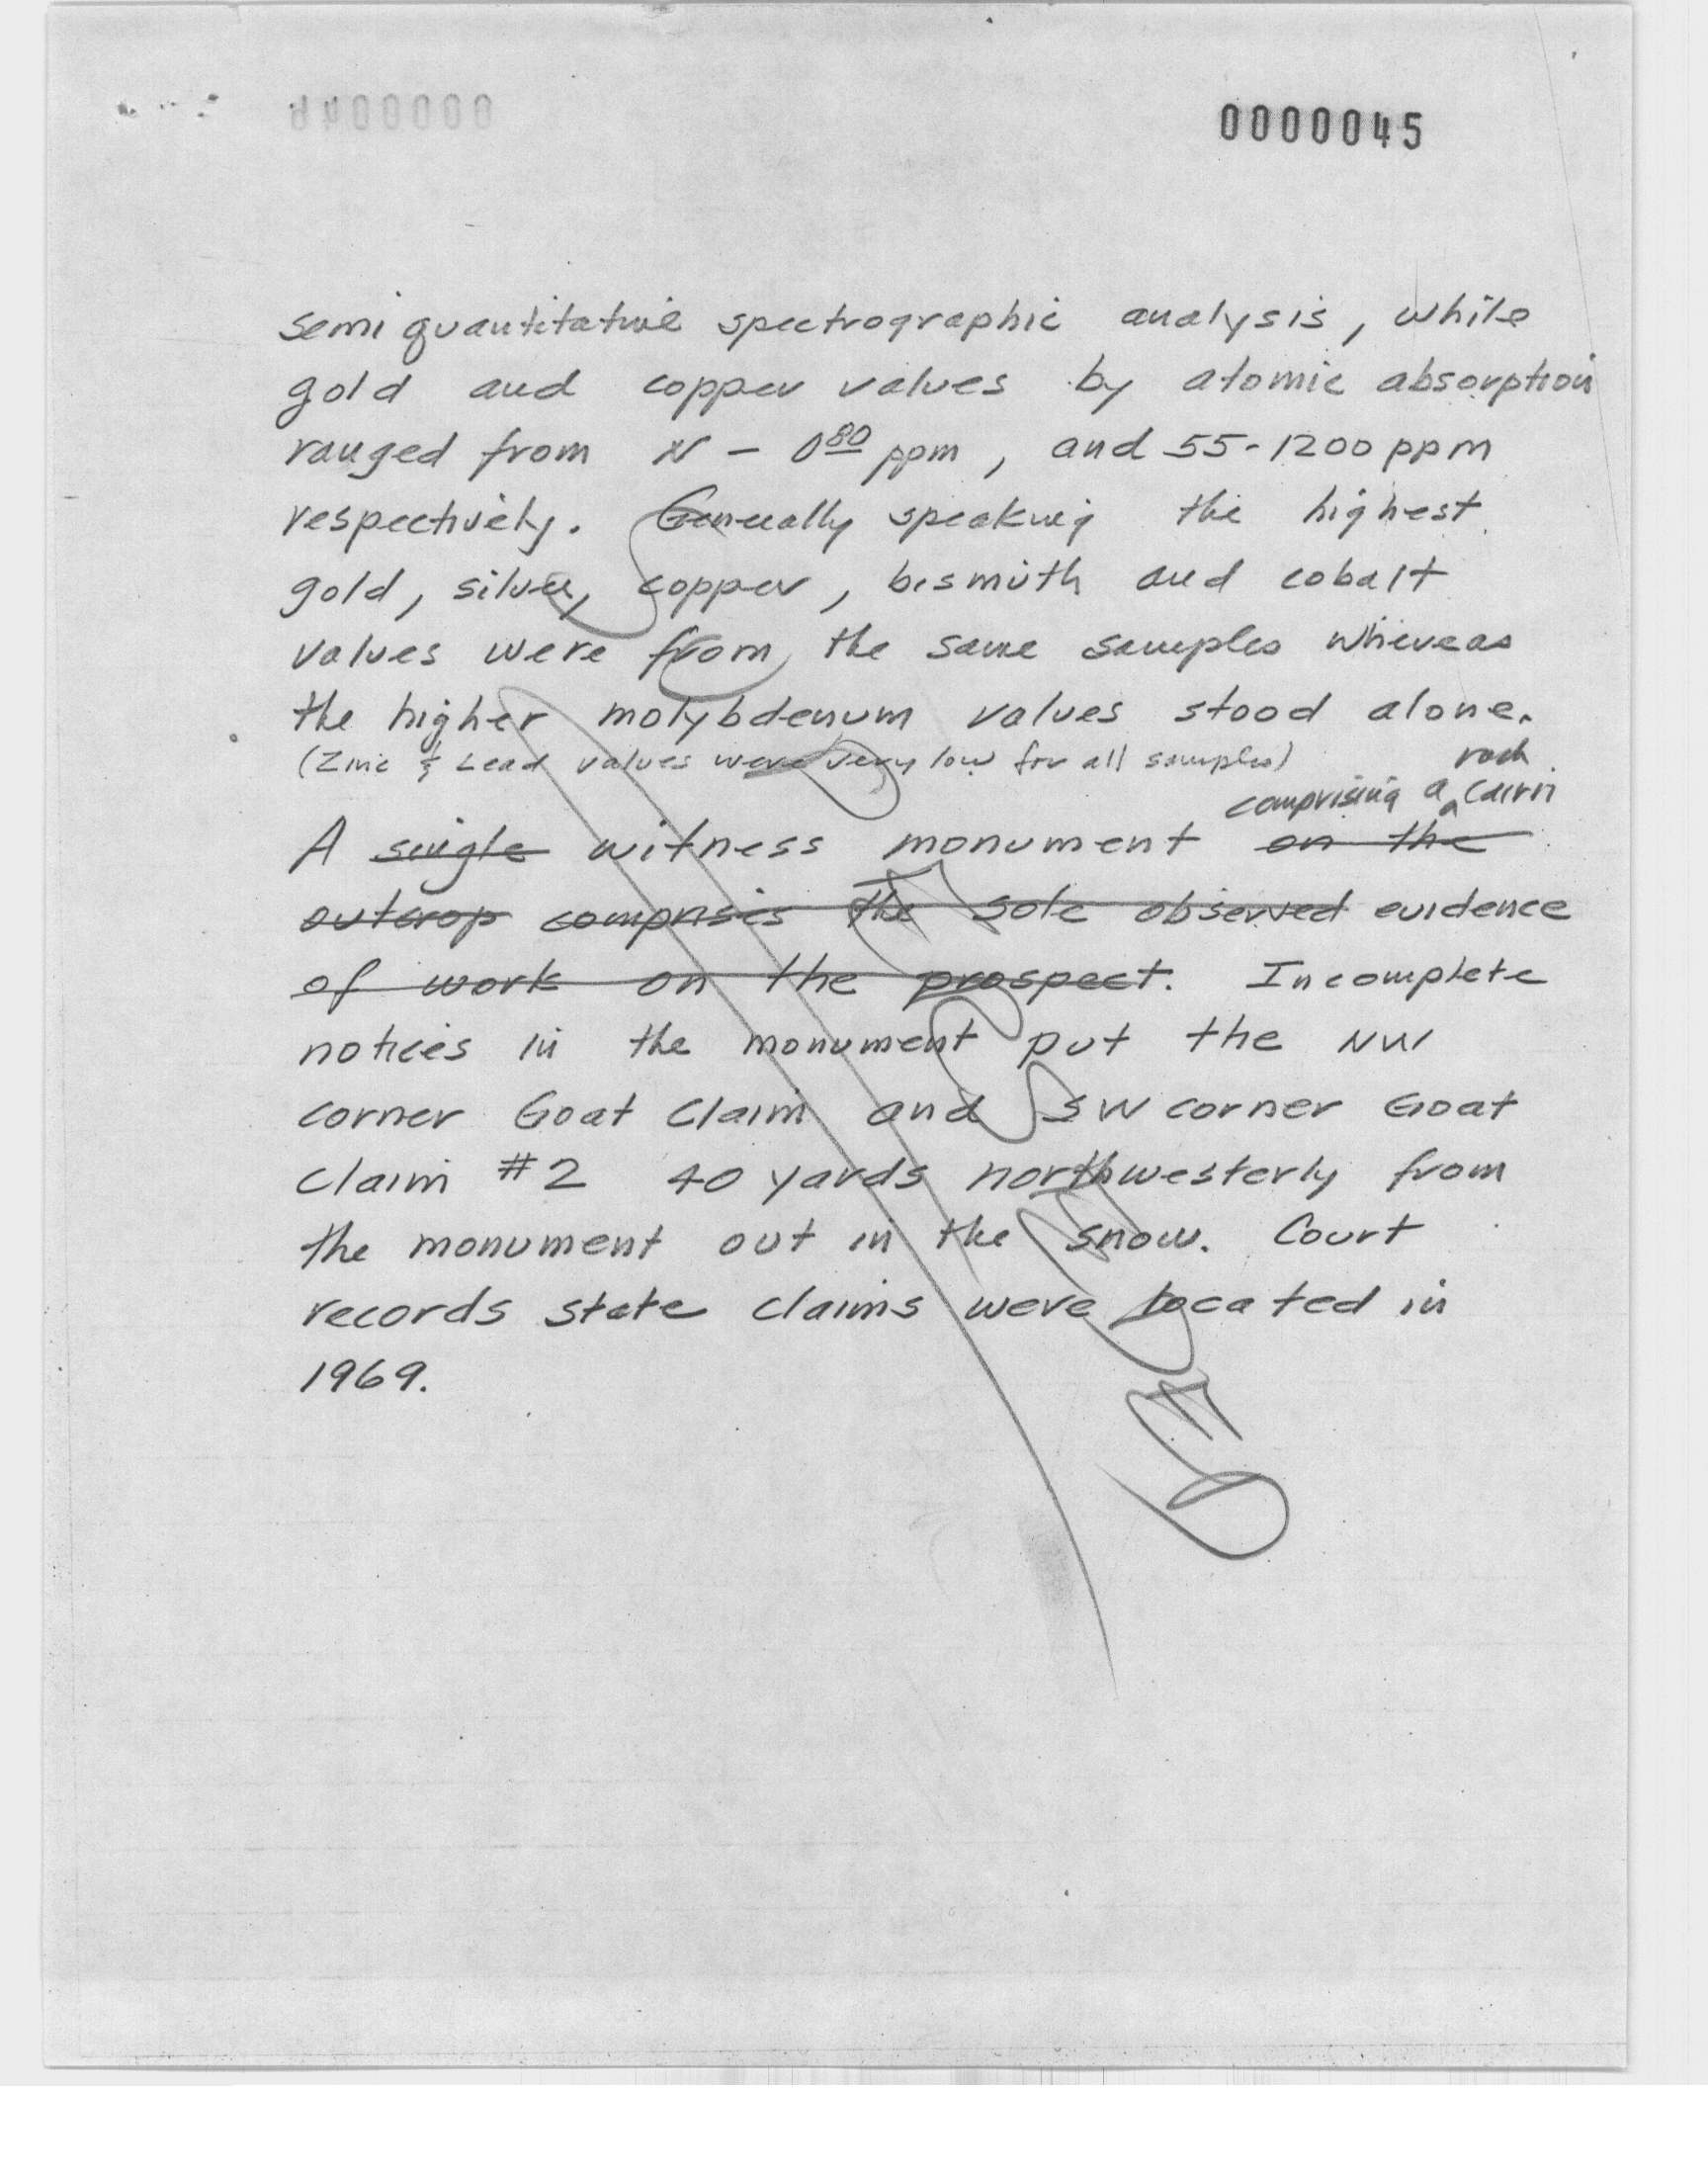 0000045
semiquantitative spectrographic analysis, while
gold and copper values by atomic absorption
ranged from N - 0.80 ppm, and 55-1200 ppm
respectively. Generally speaking the highest
gold, silver, copper, bismuth and cobalt
values were from the same samples whereas
the higher molybdenum values stood alone.
(Zinc & Lead values were very low for all samples)
rock
comprising a cairn
A single witness monument on the
outcrop comprises the sole observed evidence
of work on the prospect. Incomplete
notices in the monument put the NW
corner Goat Claim and SW corner Goat
Claim #2 40 yards northwesterly from
the monument out in the snow. Court
records state claims were located in
1969.